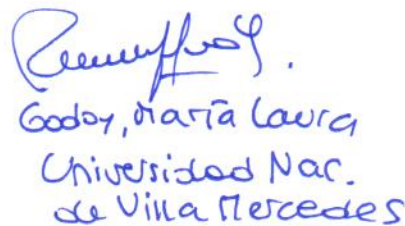 Godoy, María Laura
Universidad Nac.
de Villa Mercedes